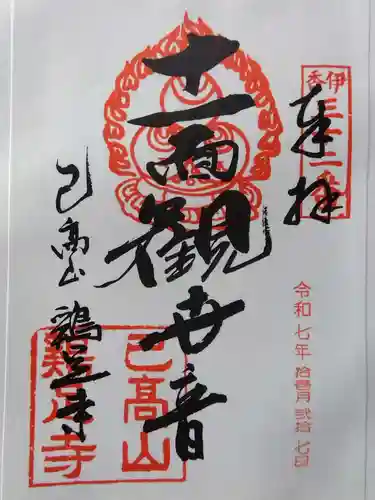 奉拝
伊香三十三番
令和七年拾壹月貳拾七日
十一面観世音
己高山
鶏足寺
己高山
鶏足寺